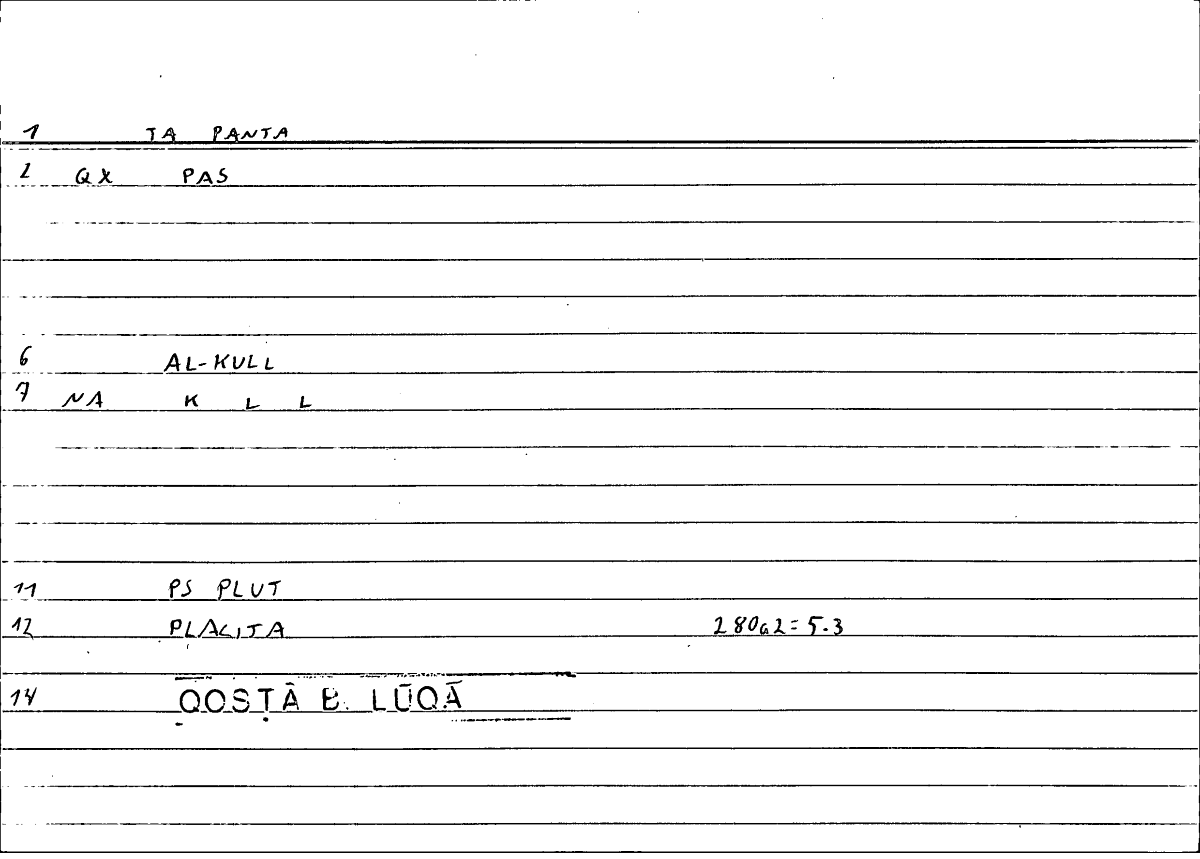 1 TA PANTA
2 QX PAS
6 AL-KULL
7 NA K L L
11 PS PLUT
12 PLACITA 280a2=5.3
14 QOSṬĀ B. LŪQĀ